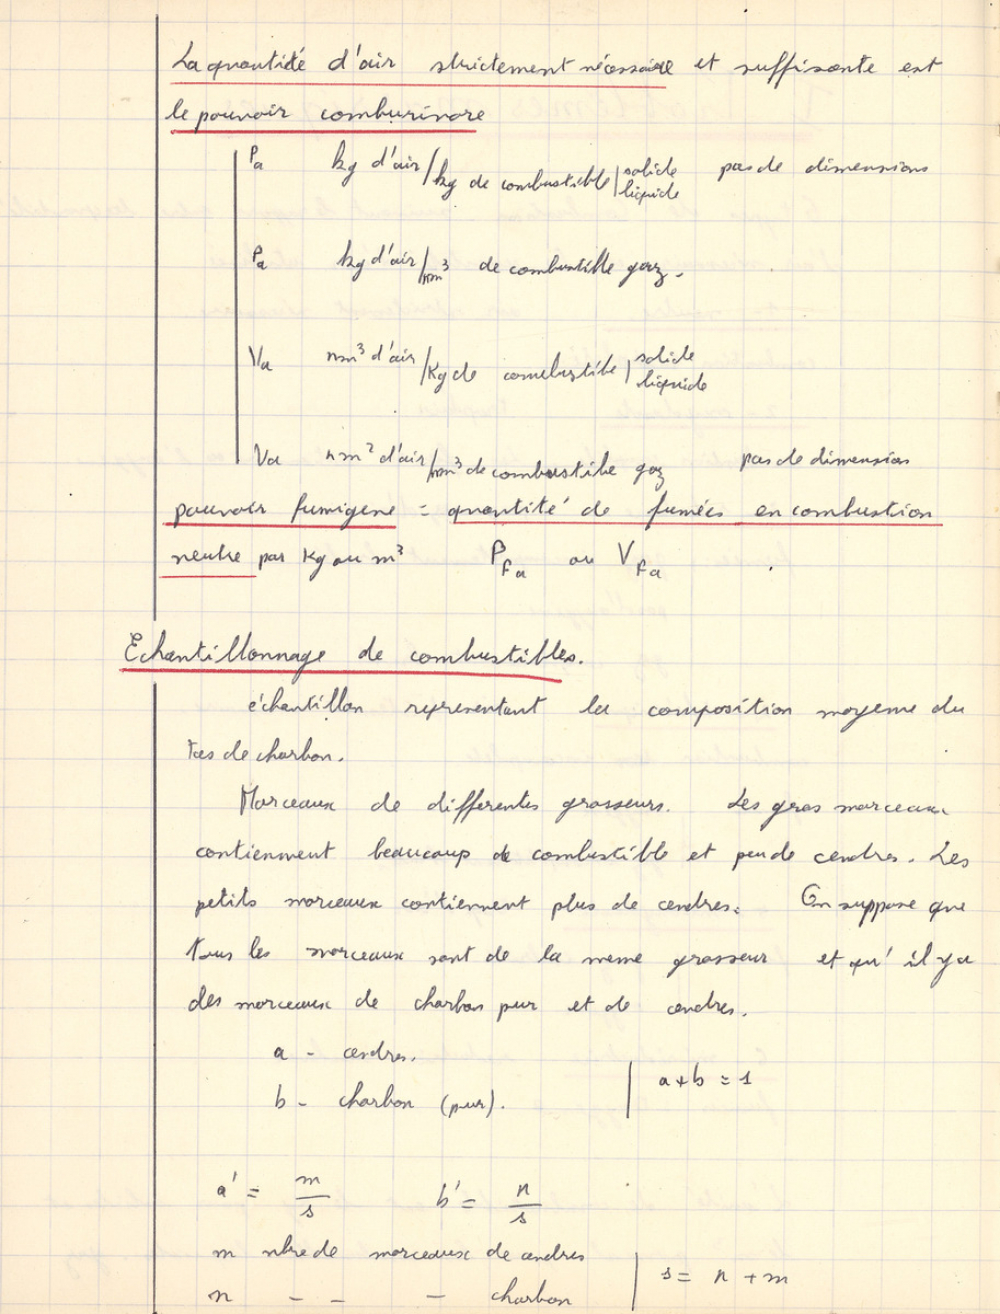 La quantité d'air strictement nécessaire et suffisante est
le pouvoir comburivore
Pa kg d'air/kg de combustible | solide liquide pas de dimensions
Pa kg d'air/nm³ de combustible gaz.
Va nm³ d'air/Kg de combustible | solide liquide
Va nm³ d'air/nm³ de combustible gaz pas de dimension
pouvoir fumigene = quantité de fumées en combustion
neutre par Kg ou m³ P_Fa ou V_Fa
Echantillonnage de combustibles.
échantillon representant la composition moyenne du
tas de charbon.
Morceaux de differentes grosseurs. Les gros morceaux
contiennent beaucoup de combustible et peu de cendres. Les
petits morceaux contiennent plus de cendres. On suppose que
tous les morceaux sont de la meme grosseur et qu'il y a
des morceaux de charbon pur et de cendres.
a - cendres.
b - charbon (pur). | a + b = 1
a' = m/s b' = n/s
m nbre de morceaux de cendres
n - - - charbon | s = n + m